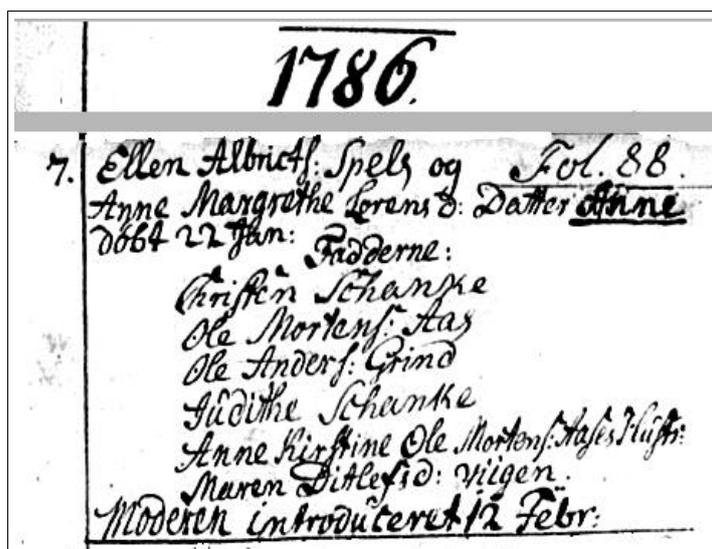 1786.
7. Ellen Albricts: Spels og Fol. 88.
Anne Margrethe Lorensd: Datter Anne
døbt 22 Jan: Fadderne:
Christen Schanke
Ole Mortens: Aas
Ole Anders: Grind
Judithe Schanke
Anne Kirstine Ole Mortens: Aases Hustr:
Maren Ditlefsd: Viigen.
Moderen introduceret 12 Febr: